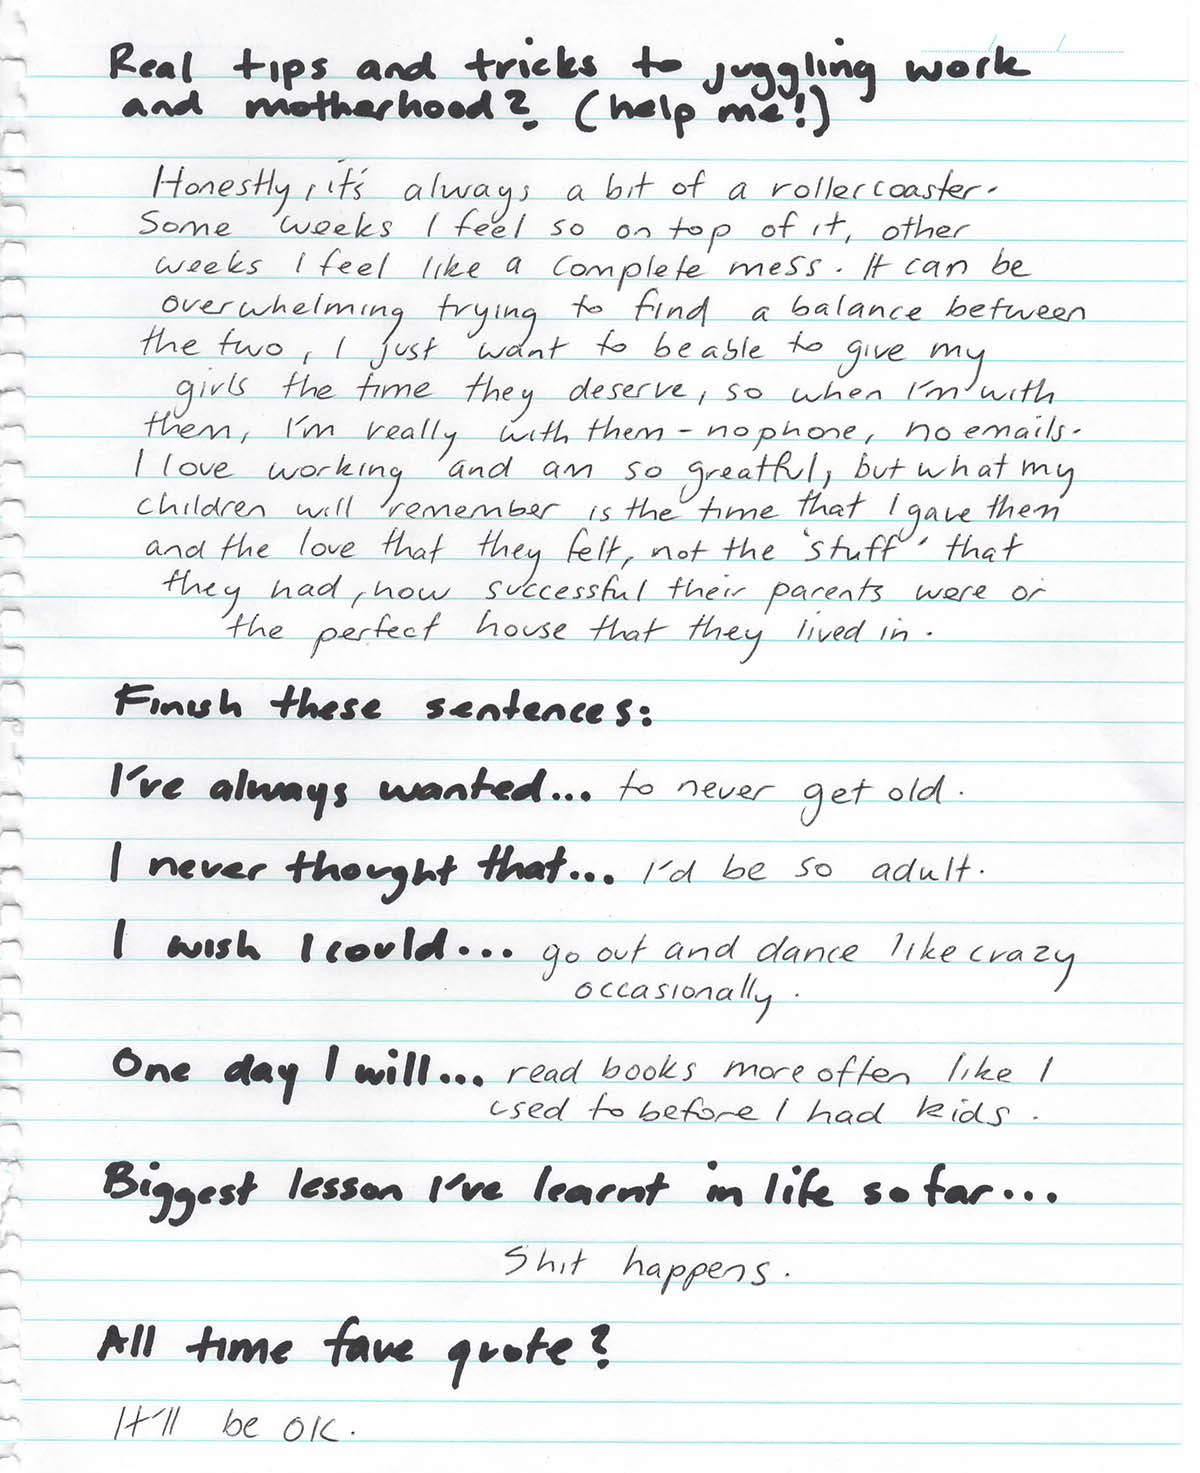 Real tips and tricks to juggling work
and motherhood? (help me!)
Honestly, it's always a bit of a rollercoaster.
Some weeks I feel so on top of it, other
weeks I feel like a complete mess. It can be
overwhelming trying to find a balance between
the two, I just want to be able to give my
girls the time they deserve, so when I'm with
them, I'm really with them - no phone, no emails.
I love working and am so greatful, but what my
children will remember is the time that I gave them
and the love that they felt, not the 'stuff' that
they had, how successful their parents were or
the perfect house that they lived in.
Finish these sentences:
I've always wanted... to never get old.
I never thought that... I'd be so adult.
I wish I could... go out and dance like crazy
occasionally.
One day I will... read books more often like I
used to before I had kids.
Biggest lesson I've learnt in life so far...
Shit happens.
All time fave quote?
It'll be OK.